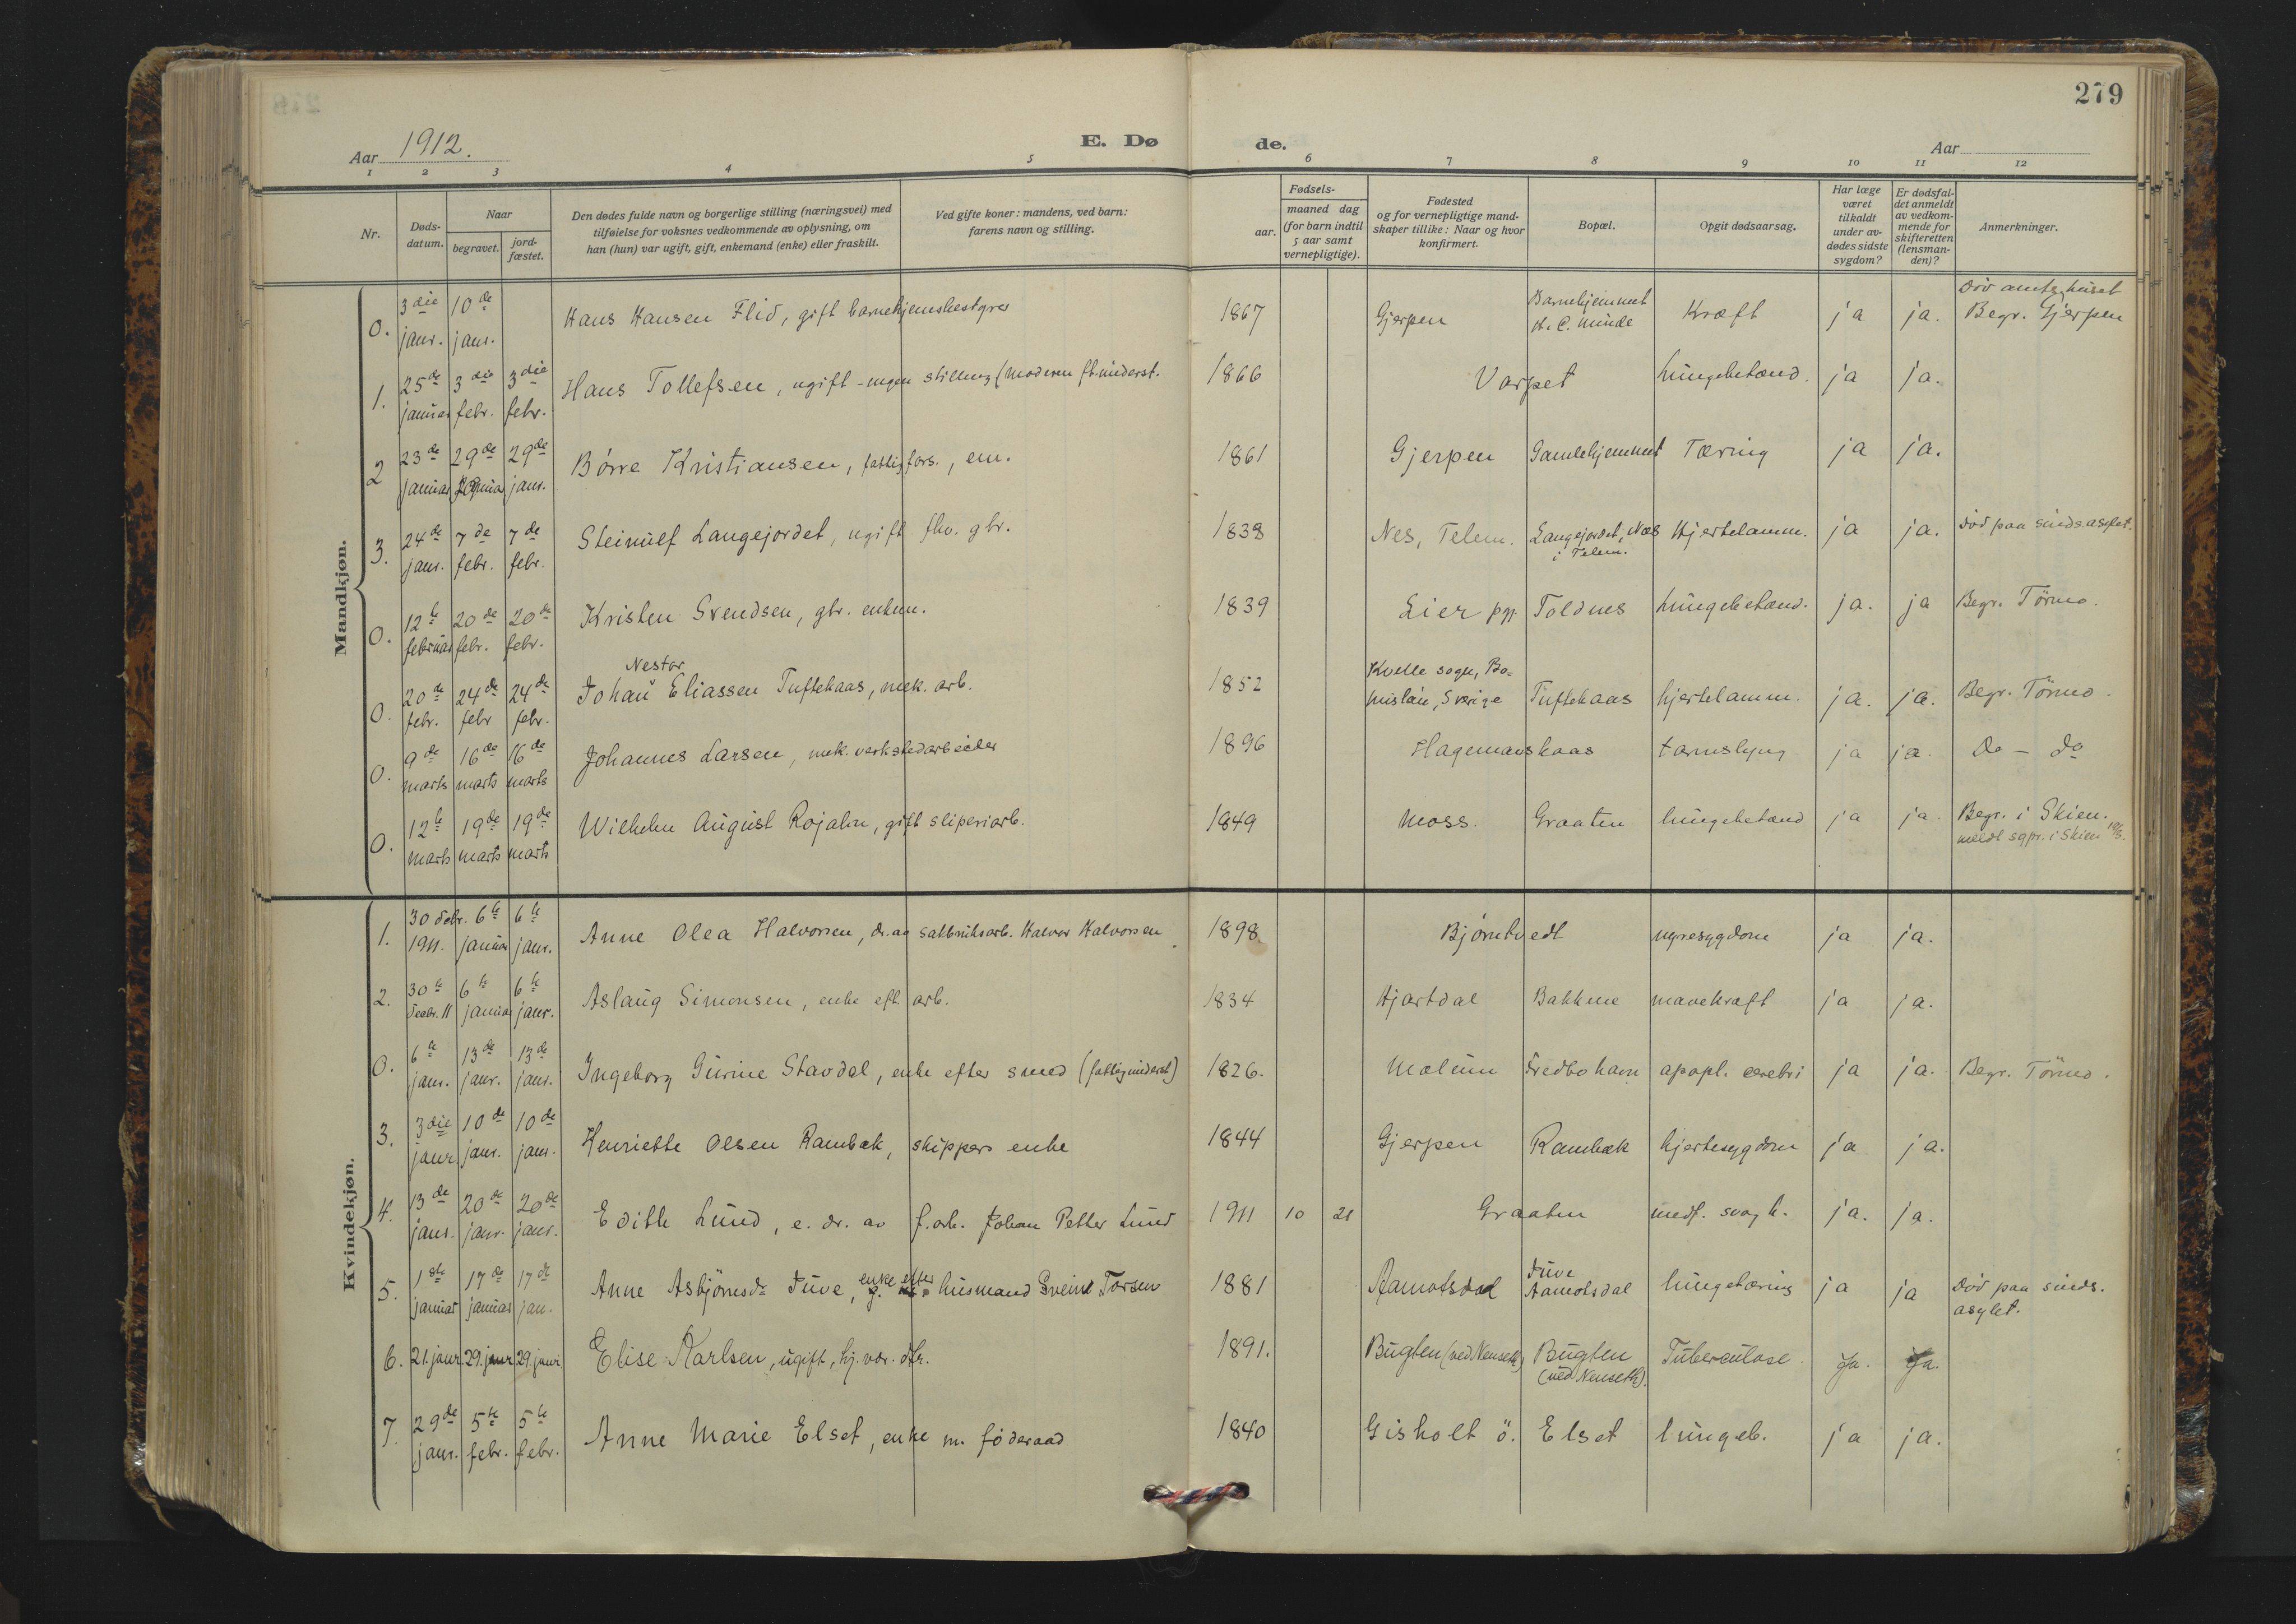 279
Aar 1912.
E. Døde.
Aar
1 2 3 4 5 6 7 8 9 10 11 12
Nr.
Døds-
datum.
Naar
begravet.
jord-
fæstet.
Den dødes fulde navn og borgerlige stilling (næringsvei) med
tilføielse for voksnes vedkommende av oplysning, om
han (hun) var ugift, gift, enkemand (enke) eller fraskilt.
Ved gifte koner: mandens, ved barn:
farens navn og stilling.
Fødsels-
aar.
maaned dag
(for barn indtil
5 aar samt
vernepligtige).
Fødested
og for vernepligtige mand-
skaper tillike: Naar og hvor
konfirmert.
Bopæl.
Opgit dødsaarsag.
Har læge
været
tilkaldt
under av-
dødes sidste
sygdom?
Er dødsfal-
det anmeldt
av vedkom-
mende for
skifteretten
(lensman-
den)?
Anmerkninger.
Mandkjøn.
0. 3die janr. 10de janr. Hans Hansen Flid, gift barnehjemsbestyrer 1867 Gjerpen Barnehjemmet H. C. Minde Kræft ja ja. Död amtssyhuset Begr. Gjerpen
1. 25de januar 3die febr. 3die febr. Hans Tollefsen, ugift - ingen stilling (moderen ft. underst. 1866 Varpet lungebetænd. ja ja.
2 23de januar 29de januar 29de janr. Börre Kristiansen, fattigfors., em. 1861 Gjerpen Gamlehjemmet Tæring ja ja.
3. 24de janr. 7de febr. 7de febr. Steinulf Langejordet, ugift fhv. gbr. 1838 Nes, Telem. Langejordet, Næs i Telem. Hjertelamm. ja ja. Död paa sindsasylet.
0. 12te februar 20de febr. 20de febr. Kristen Svendsen, gbr. enkem. 1839 Eier pgj. Toldnes lungebetænd. ja. ja Begr. Törmo.
0. 20de febr. 24de febr 24de febr. Johan Nestor Eliassen Tuftekaas, mek. arb. 1852 Kville sogn, Bohuslän, Sverige Tuftekaas hjertelamm. ja. ja. Begr. Törmo.
0. 9de marts 16de marts 16de marts Johannes Larsen, mek. verkstedarbeider 1896 Hagemanskaas tarmslyng ja ja. do - do
0. 12te marts 19de marts 19de marts Wilhelm August Rojahn, gift sliperiarb. 1849 Moss. Graaten lungebetænd ja ja. Begr. i Skien. meldt sgpr. i Skien
Kvindekjøn.
1. 30 debr. 1911. 6te januar 6te janr. Anne Olea Halvorsen, dr. av fabriksarb. Halvor Halvorsen 1898 Bjørntvedt nyresygdom ja ja.
2. 30te decbr. 11 6te januar 6te janr. Aslaug Simonsen, enke eft. arb. 1834 Hjartdal Bakkene mavekræft ja ja.
0. 6te janr. 13de janr. 13de janr. Ingeborg Gurine Stavdal, enke efter smed (fattigunderst) 1826. Mælum Fredbo havn apopl. cerebri ja ja. Begr. Törmo.
3. 3die janr 10de janr. 10de janr. Henriette Olsen Rambæk, skippers enke 1844 Gjerpen Rambæk hjertesygdom ja ja.
4. 13de janr. 20de janr. 20de janr. Edith Lund, e. dr. av f.arb. Johan Petter Lund 1911 10 21 Graaten medf. svagh. ja. ja.
5. 1ste januar 17de januar 17de jan. Anne Asbjörnsdr Juve, enke efter husmand Svein Torsen 1881 Aamotsdal Juve Aamotsdal lungetæring ja ja Död paa sinds. asylet.
6. 21. janr. 29. janr 29. janr. Elise Karlsen, ugift, hj.vær. dtr. 1891. Bugten (ved Nenseth) Bugten (ved Nenseth). Tuberculose Ja. Ja.
7. 29de janr. 5te febr. 5te febr. Anne Marie Elset, enke m. föderaad 1840 Gisholt ö. Elset lungeb. ja ja.